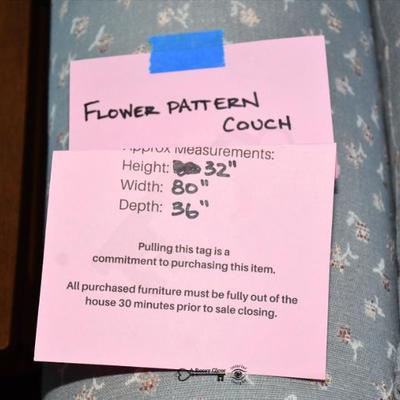 FLOWER PATTERN
COUCH
Approx Measurements:
Height: 32"
Width: 80"
Depth: 36"
Pulling this tag is a
commitment to purchasing this item.
All purchased furniture must be fully out of the
house 30 minutes prior to sale closing.